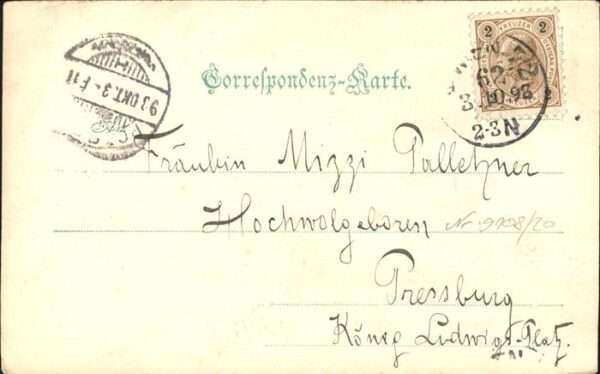 2 KREUZER 2
Correspondenz-Karte.
62
3.10.98
2-3N
98 OKT.3-F11
Fräulein Mizzi Palletzner
Hochwolgeboren
Nr 9108/20
Pressburg
Köneg Ludwigs-Platz